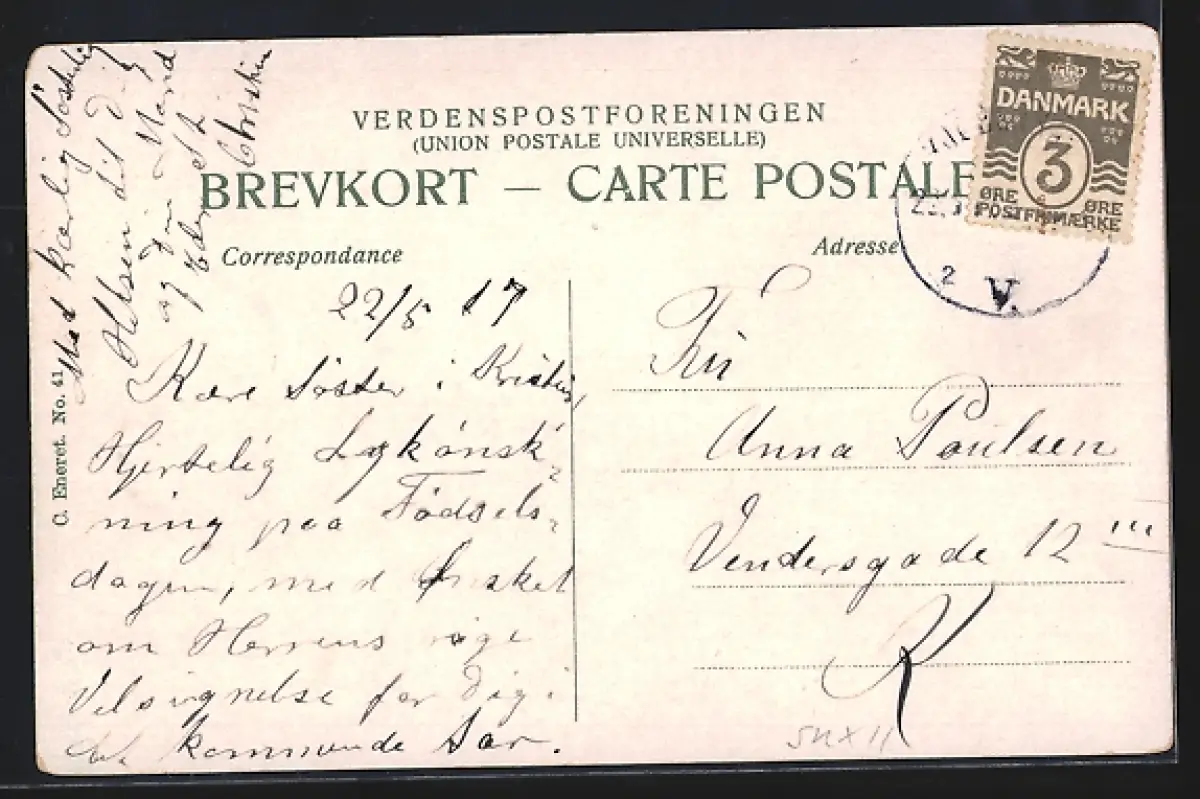 VERDENSPOSTFORENINGEN
(UNION POSTALE UNIVERSELLE)
BREVKORT — CARTE POSTALE
Correspondance
Adresse
DANMARK
3
ØRE ØRE
POSTFRIMÆRKE
2 V.
C. Eneret. No. 41
22/5 17
Kære Søster i
Hjertelig Lykønsk-
ning paa Fødsels-
dagen, med Ønsket
om Herrens rige
Velsignelse for Dig i
det kommende Aar.
Med kærlig Søsterlig
Hilsen til Dig
og Din Mand
Christian
Fru
Anna Poulsen
Vendersgade 12 III
K